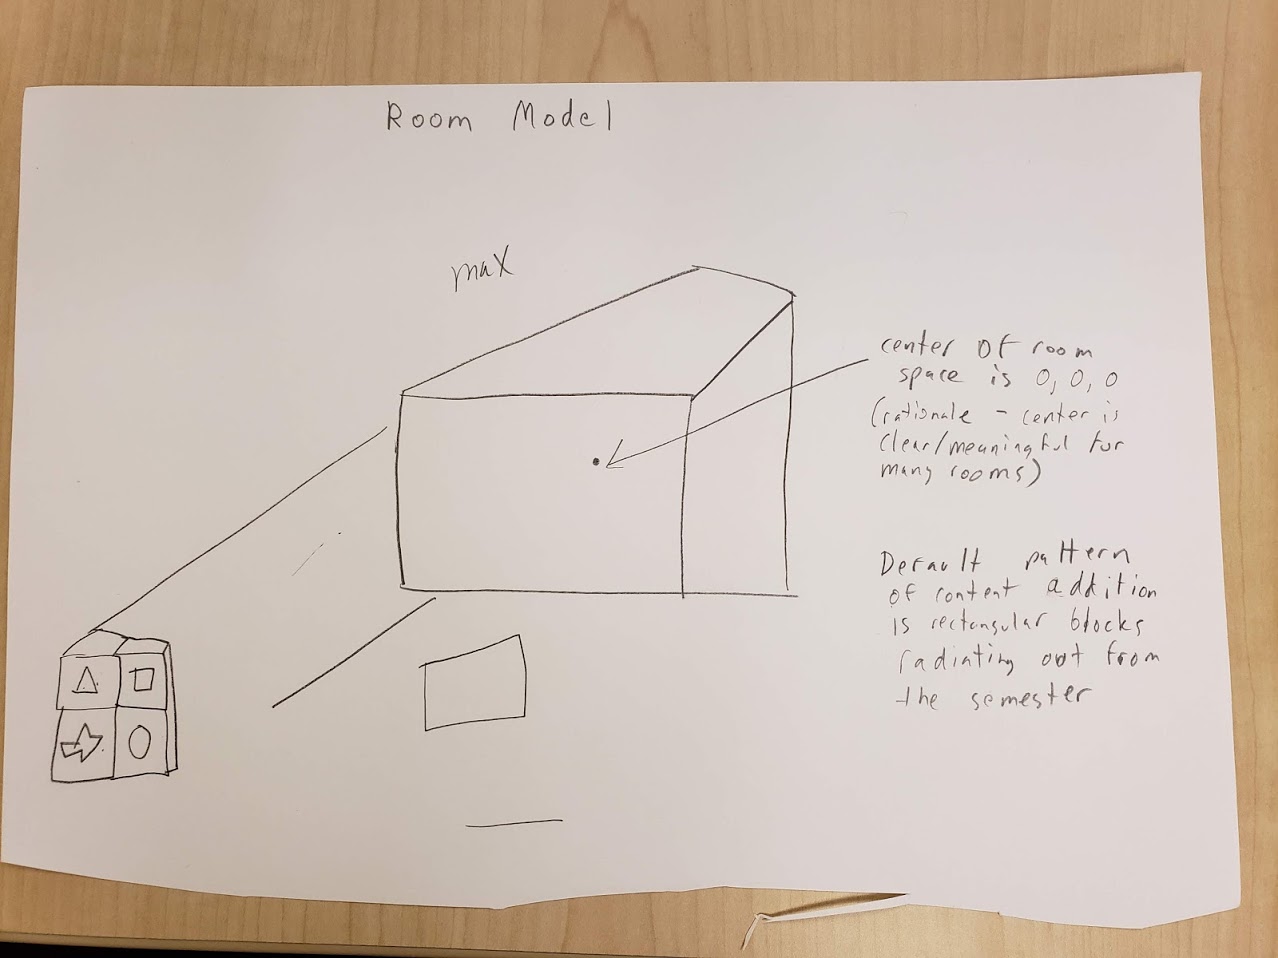 Room Model
max
center of room
space is 0, 0, 0
(rationale - center is
clear/meaningful for
many rooms)
Default pattern
of content addition
is rectangular blocks
radiating out from
the semester